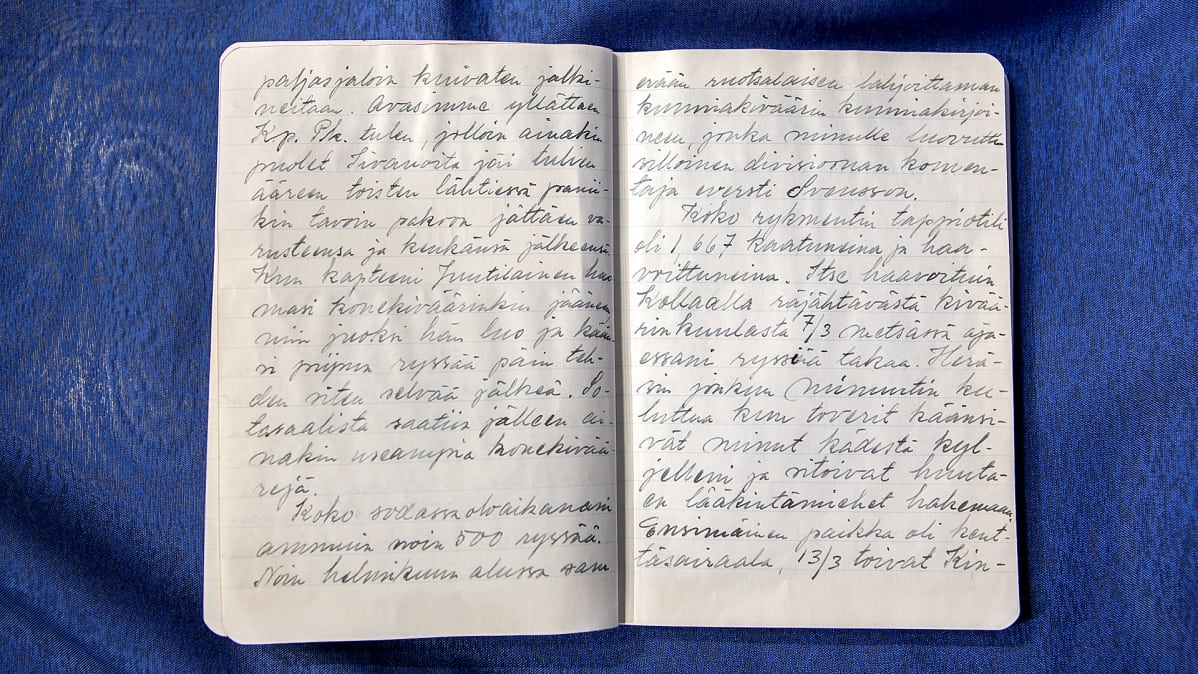 paljasjaloin kuivaten jalki-
neitaan. Avasimme yllättäen
Kp. Pk. tulen, jolloin ainakin
puolet Iivanoista jäi tulien
ääreen toisten lähtiessä panii-
kin tavoin pakoon jättäen va-
rusteensa ja kenkänsä jälkeensä.
Kun kapteeni Juutilainen huo-
masi konekiväärinkin jääneen,
niin juoksi hän luo ja kään-
si piipun ryssää päin teh-
den siten selvää jälkeä. So-
tasaalista saatiin jälleen ai-
nakin useampia konekivää-
rejä.
Koko sodassa oloaikanani
ammuin noin 500 ryssää.
Noin helmikuun alussa sain
erään ruotsalaisen lahjoittaman
kunniakiväärin kunniakirjoi-
neen, jonka minulle luovutti
silloinen divisioonan komen-
taja eversti Svensson.
Koko rykmentin tappiotili
oli 1,667 kaatuneina ja haa-
voittuneina. Itse haavoituin
Kollaalla räjähtävästä kivää-
rinkuulasta 7/3 metsässä aja-
essani ryssää takaa. Herä-
sin jonkun minuutin ku-
luttua kun toverit käänsi-
vät minut kädestä kyl-
jelleni ja sitoivat huuta-
en lääkintämiehet hakemaan.
Ensimäinen paikka oli kent-
täsairaala, 13/3 toivat Kin-